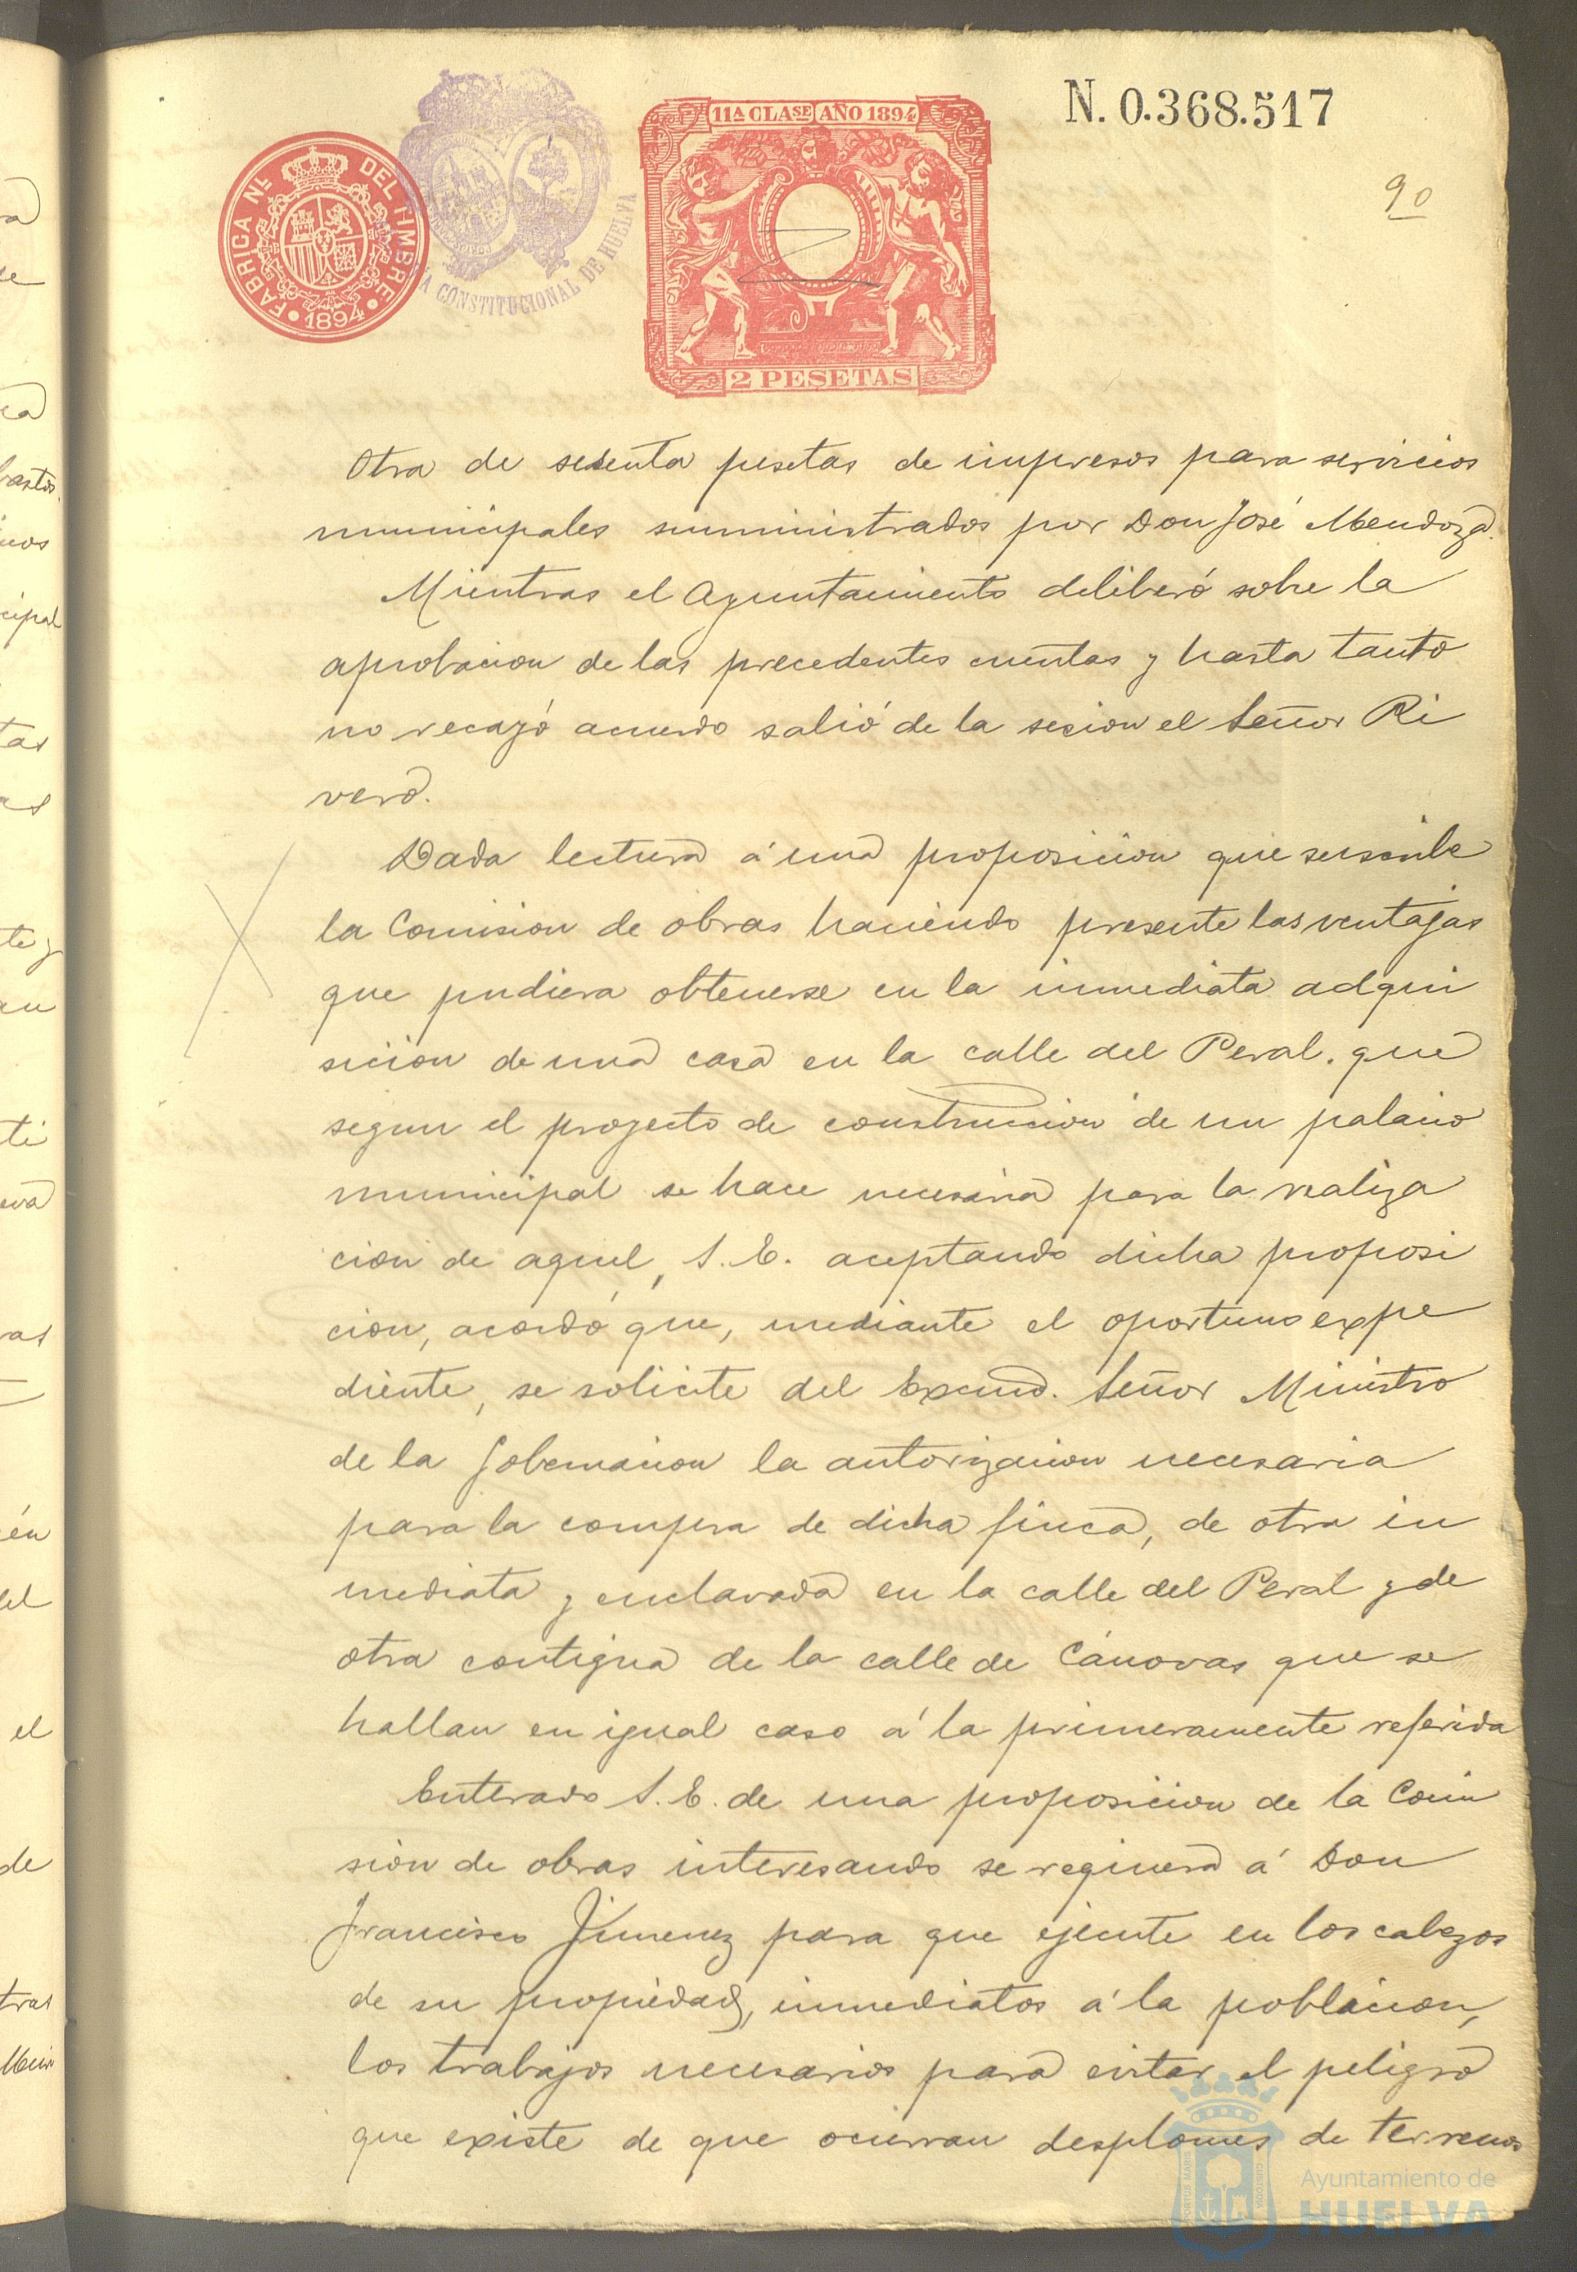 N. 0.368.517
90
11A CLASE AÑO 1894
FABRICA NL DEL TIMBRE
1894
CONSTITUCIONAL DE HUELVA
2 PESETAS
Otra de sesenta pesetas de impresos para servicios
municipales suministrados por Don José Mendoza.
Mientras el Ayuntamiento deliberó sobre la
aprobacion de las precedentes cuentas y hasta tanto
no recayó acuerdo salió de la sesion el Señor Ri
vero.
Dada lectura á una proposicion que suscribe
la Comision de obras haciendo presente las ventajas
que pudiera obtenerse en la inmediata adqui
sicion de una casa en la calle del Peral. que
segun el proyecto de construccion de un palacio
municipal se hace necesaria para la realiza
cion de aquel, S. E. aceptando dicha proposi
cion, acordó que, mediante el oportuno expe
diente, se solicite del Excmo. Señor Ministro
de la Gobernacion la autorizacion necesaria
para la compra de dicha finca, de otra in
mediata y enclavada en la calle del Peral y de
otra contigua de la calle de Cánovas que se
hallan en igual caso á la primeramente referida
Enterado S. E. de una proposicion de la Comi
sion de obras interesando se requiera á Don
Francisco Jimenez para que ejecute en los cabezos
de su propiedad, inmediatos á la poblacion,
los trabajos necesarios para evitar el peligro
que existe de que ocurran desplomes de terrenos
Ayuntamiento de
HUELVA